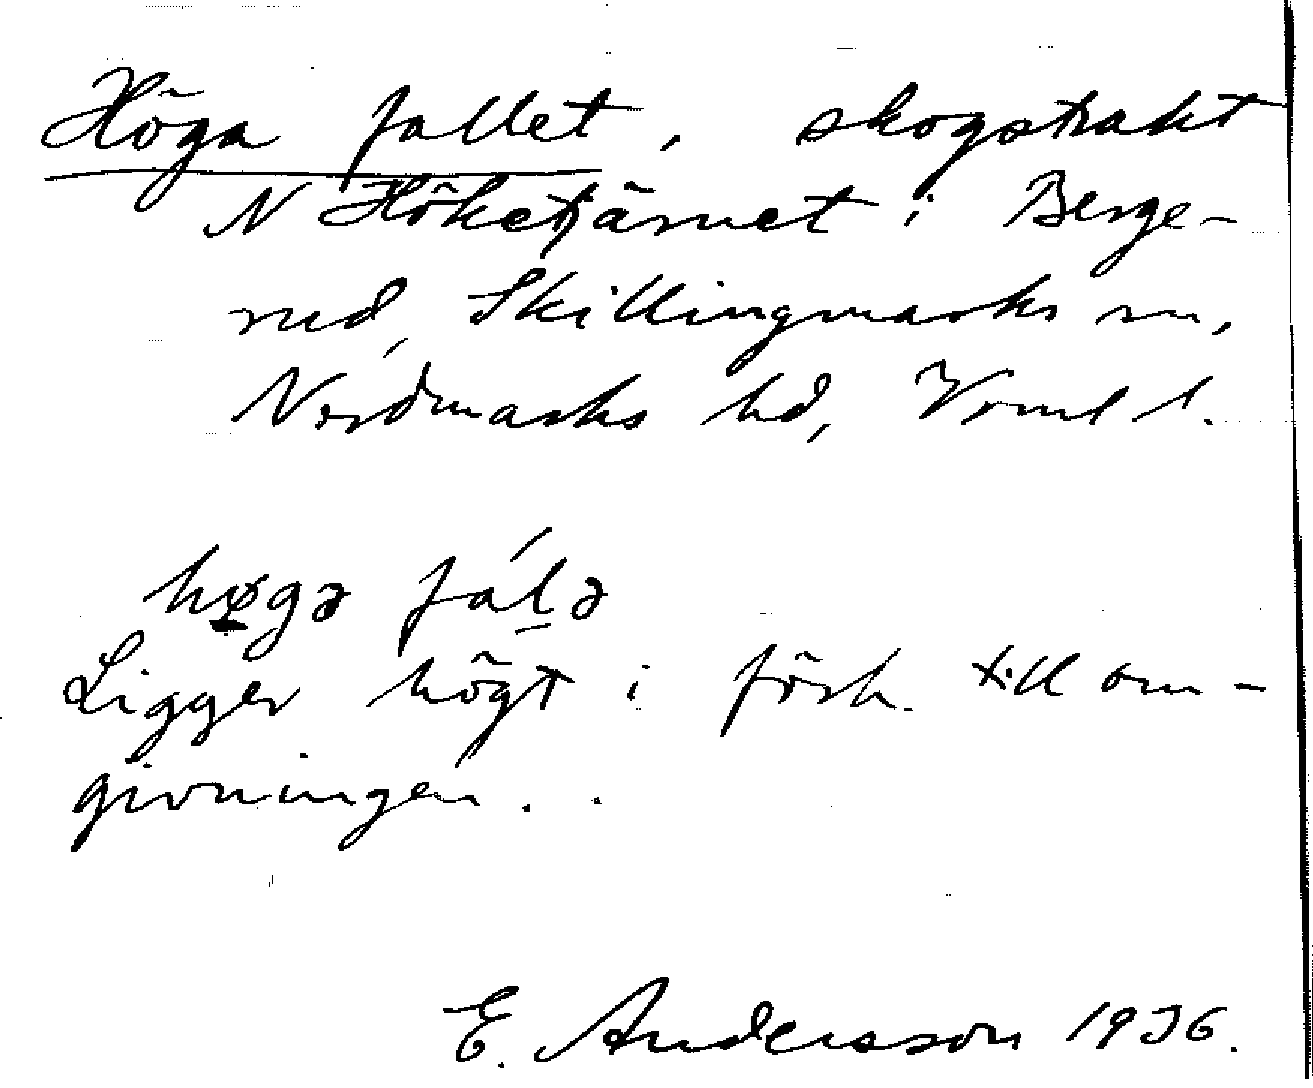 Höga fallet, skogstrakt
N Höketjärnet i Berge-
rud, Skillingmarks sn,
Nordmarks hd, Vrml l.
høgə fálə
Ligger högt i förh. till om-
givningen.
E. Andersson 1936.